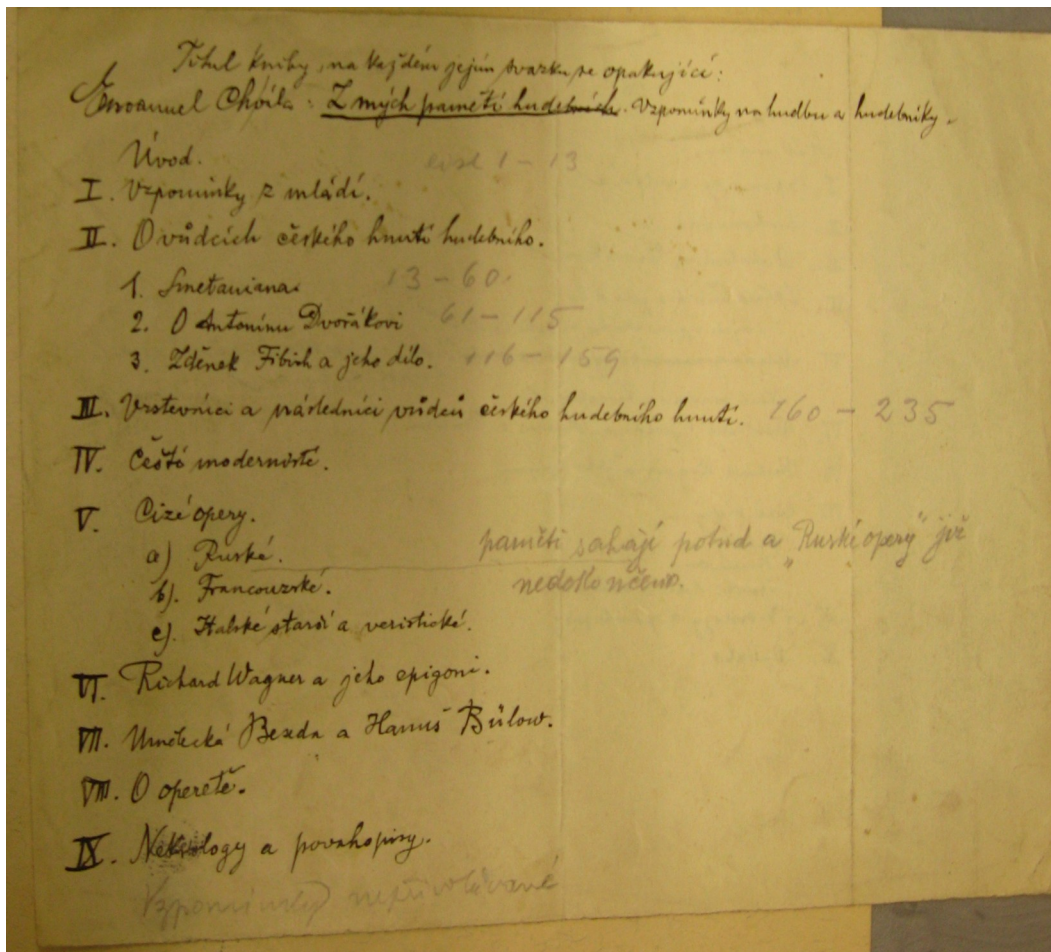 Titul knihy, na každém jejím svazku se opakující:
Emanuel Chvála: Z mých pamětí hudebních. Vzpomínky na hudbu a hudebníky.
Úvod. 1 – 13
I. Vzpomínky z mládí.
II. O vůdcích českého hnutí hudebního.
1. Smetaniana. 13 – 60.
2. O Antonínu Dvořákovi 61 – 115
3. Zdeněk Fibich a jeho dílo. 116 – 159
III. Vrstevníci a následníci vůdců českého hudebního hnutí. 160 – 235
IV. Čeští modernisté.
V. Cizé opery.
a) Ruské. paměti sahají potud a „Ruské opery" již
b). Francouzské. nedokončeno.
c). Italské starší a veristické.
VI. Richard Wagner a jeho epigoni.
VII. Umělecká Beseda a Hanuš Bülow.
VIII. O operetě.
IX. Nekrology a povahopisy.
Vzpomínky